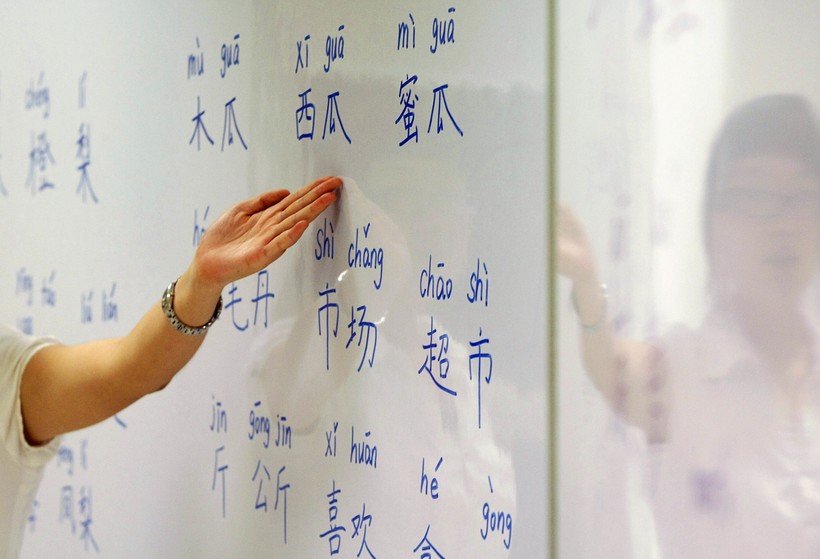 chéng lí mù guā xī guā mì guā
橙 梨 木瓜 西瓜 蜜瓜
shì chǎng chāo shì
毛丹 市场 超市
liú lián
jīn gōng jīn xǐ huān hé gòng
梨 斤 公斤 喜欢 合